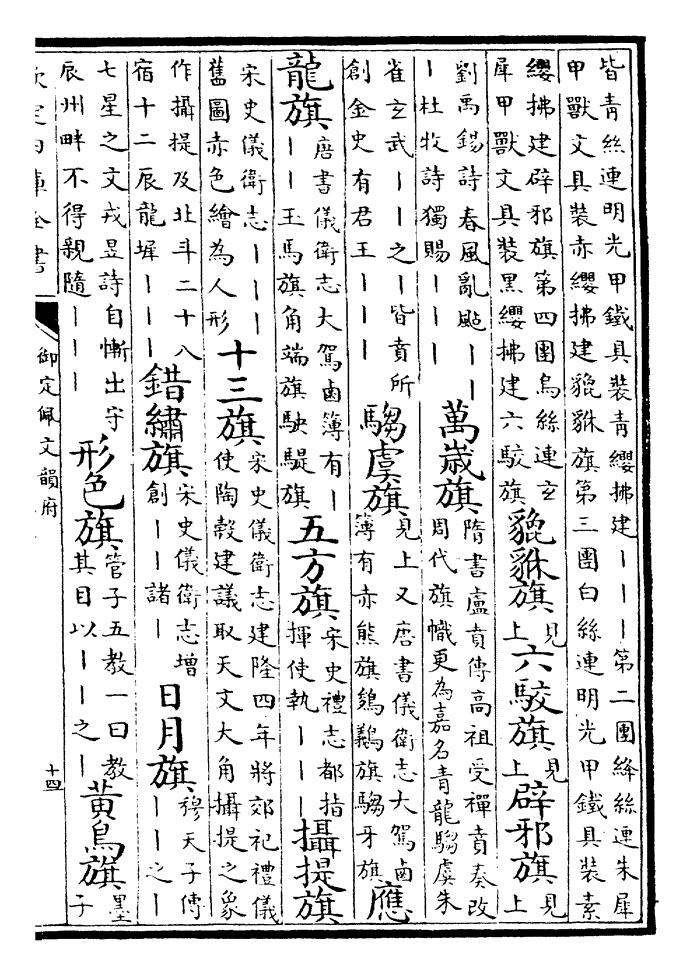 皆青絲連明光甲鐵具裝青纓拂建｜｜｜第二團絳絲連朱犀
甲獸文具裝赤纓拂建貔貅旗第三團白絲連明光甲鐵具裝素
纓拂建辟邪旗第四團烏絲連玄
犀甲獸文具裝黑纓拂建六駮旗
貔貅旗
見
上
六駮旗
見
上
辟邪旗
見
上
劉禹錫詩春風亂颭｜｜
｜杜牧詩獨賜｜｜｜
萬歲旗
隋書盧賁傳高祖受禪賁奏改
周代旗幟更為嘉名青龍騶虞朱
雀玄武｜｜之｜皆賁所
創金史有君王｜｜｜
騶虞旗
見上又唐書儀衛志大駕鹵
簿有赤熊旗鵕鸃旗騶牙旗
應
龍旗
唐書儀衛志大駕鹵簿有｜
｜｜玉馬旗角端旗駃騠旗
五方旗
宋史禮志都指
揮使執｜｜｜
攝提旗
宋史儀衛志｜｜｜
舊圖赤色繪為人形
十三旗
宋史儀衛志建隆四年將郊祀禮儀
使陶穀建議取天文大角攝提之象
作攝提及北斗二十八
宿十二辰龍墀｜｜｜
錯繡旗
宋史儀衛志增
創｜｜諸｜
日月旗
穆天子傳
｜｜之｜
七星之文戎昱詩自慚出守
辰州畔不得親隨｜｜｜
形色旗
管子五教一曰教
其目以｜｜之｜
黃鳥旗
墨
子
欽定四庫全書
御定佩文韻府
十四